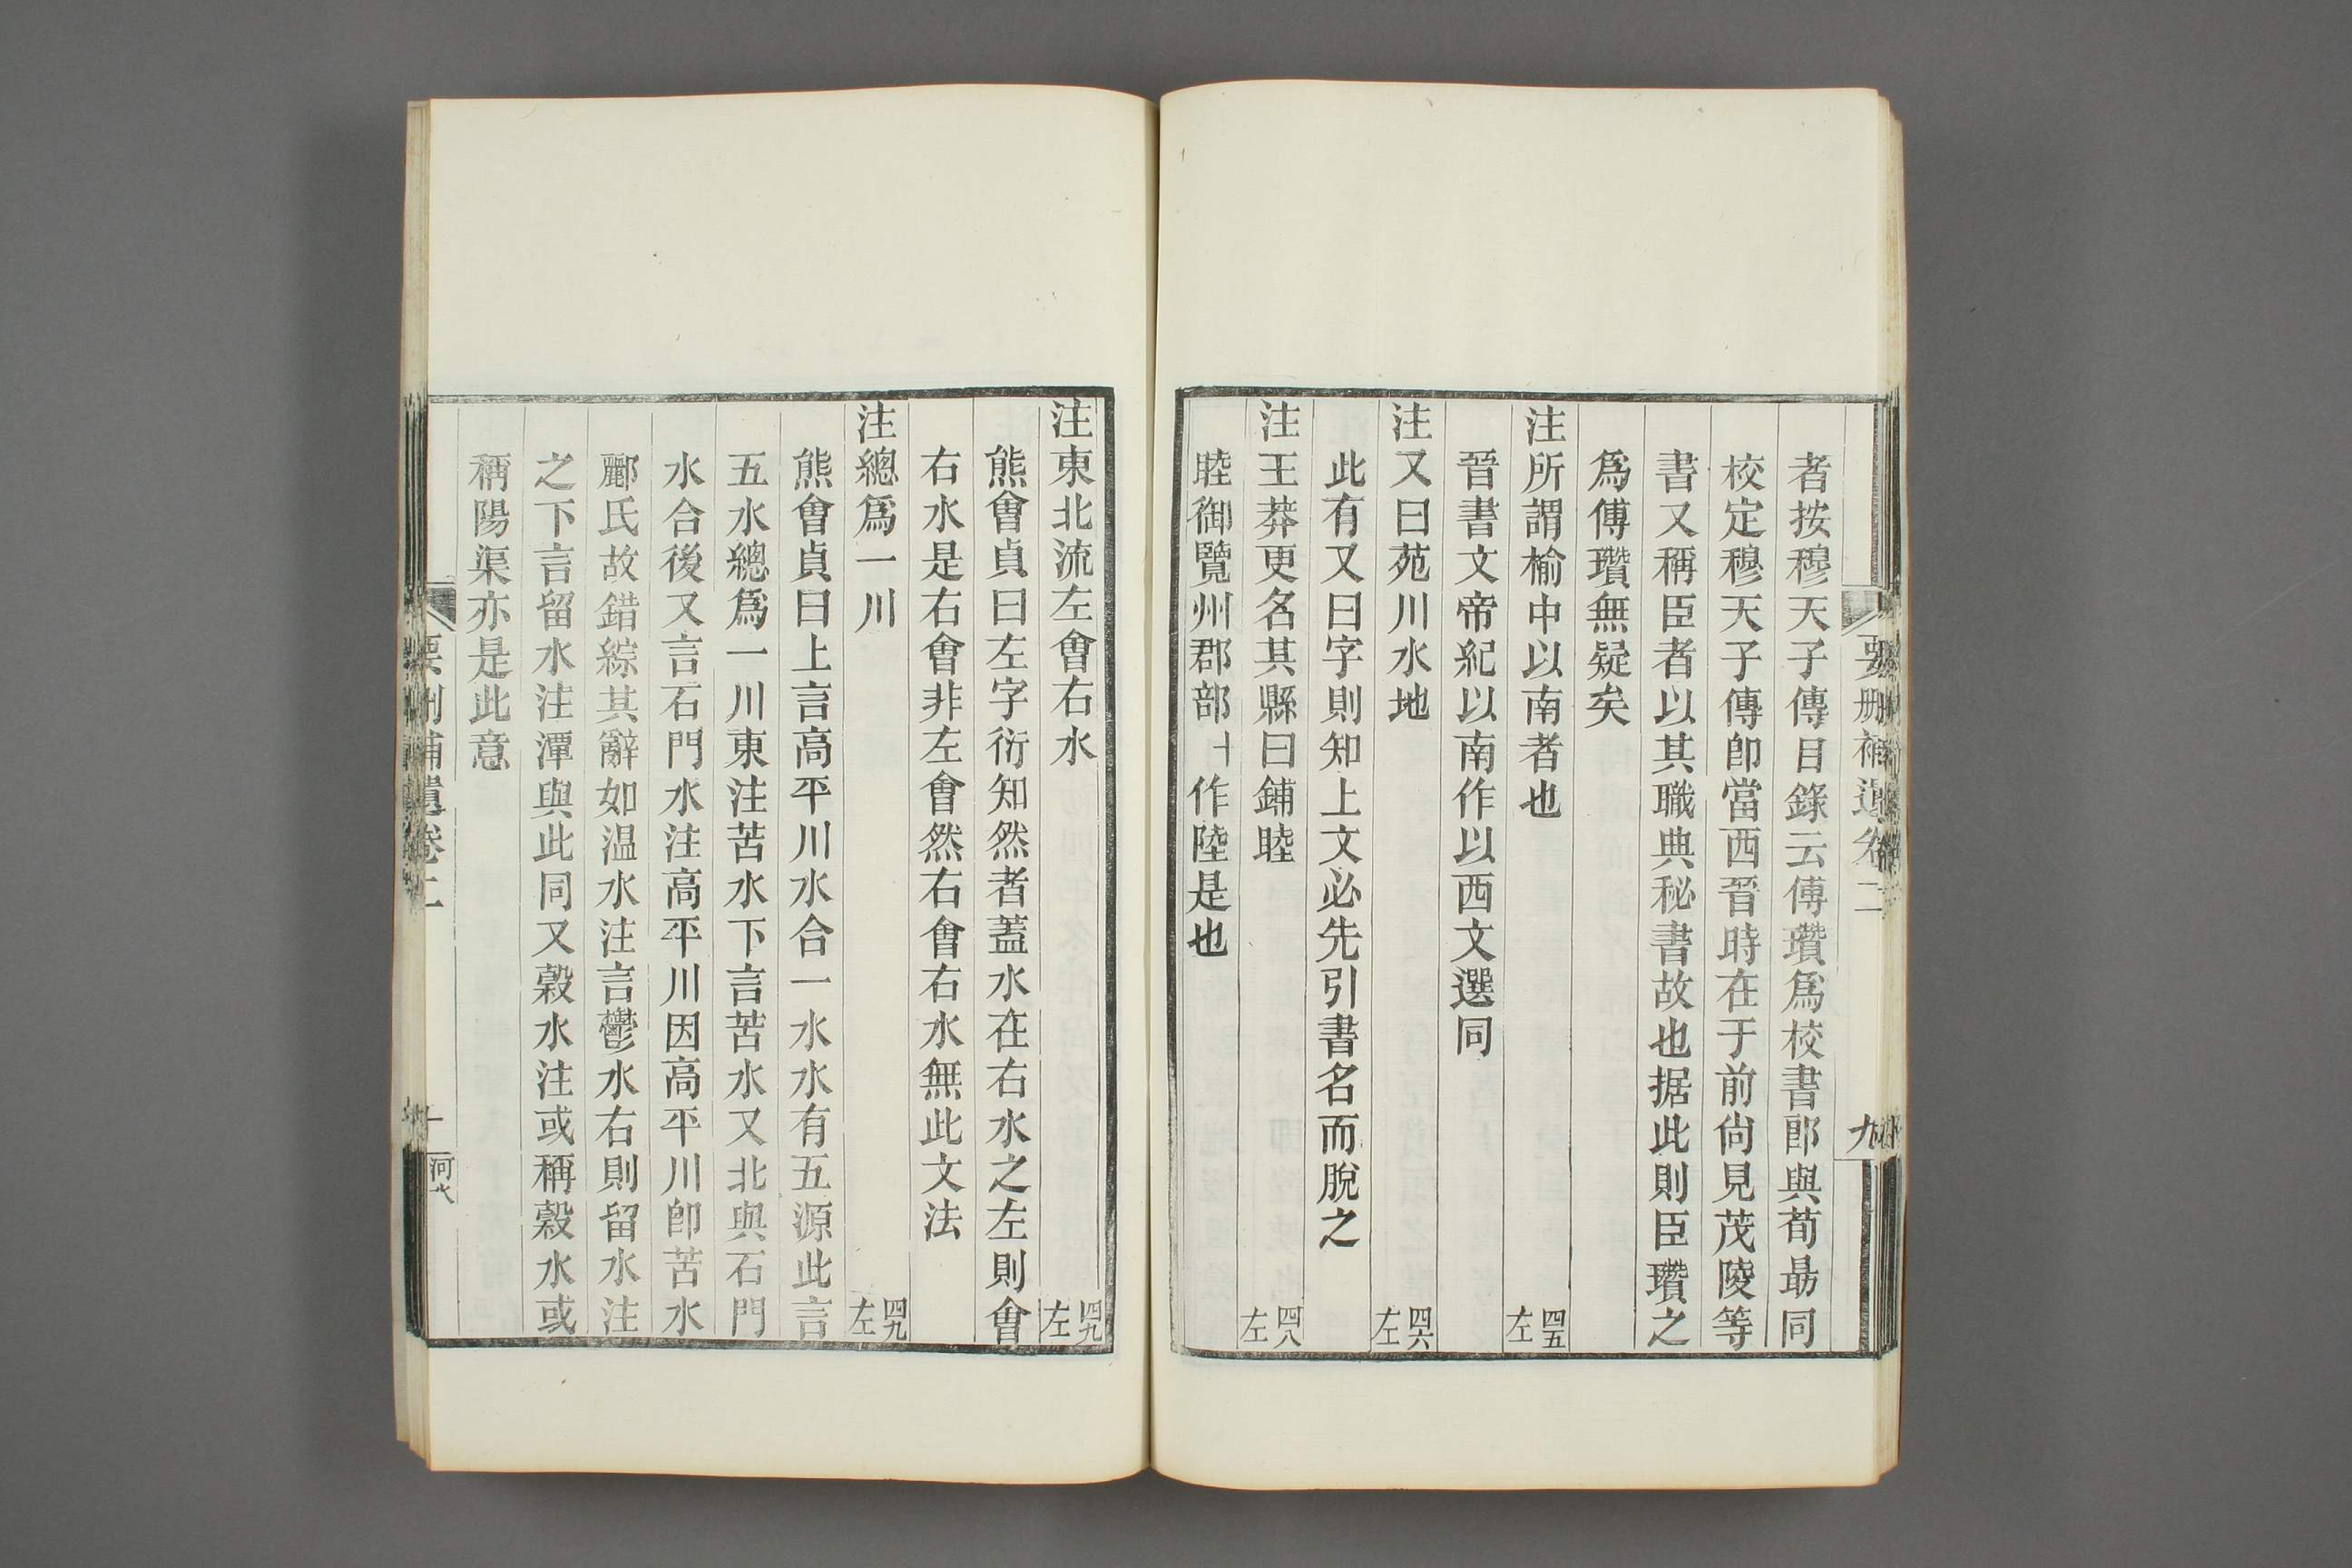 要刪補遺卷二
九
者按穆天子傳目錄云傅瓚爲校書郎與荀勗同
校定穆天子傳卽當西晉時在于前尙見茂陵等
書又稱臣者以其職典秘書故也据此則臣瓚之
爲傅瓚無疑矣
注所謂榆中以南者也 四五左
晉書文帝紀以南作以西文選同
注又曰苑川水地 四六左
此有又曰字則知上文必先引書名而脫之
注王莽更名其縣曰鋪睦 四八左
睦御覽州郡部十作陸是也
注東北流左會右水 四九左
熊會貞曰左字衍知然者蓋水在右水之左則會
右水是右會非左會然右會右水無此文法
注總爲一川 四九左
熊會貞曰上言高平川水合一水水有五源此言
五水總爲一川東注苦水下言苦水又北與石門
水合後又言石門水注高平川因高平川卽苦水
酈氏故錯綜其辭如溫水注言鬱水右則留水注
之下言留水注潭與此同又穀水注或稱穀水或
稱陽渠亦是此意
要刪補遺卷二
河